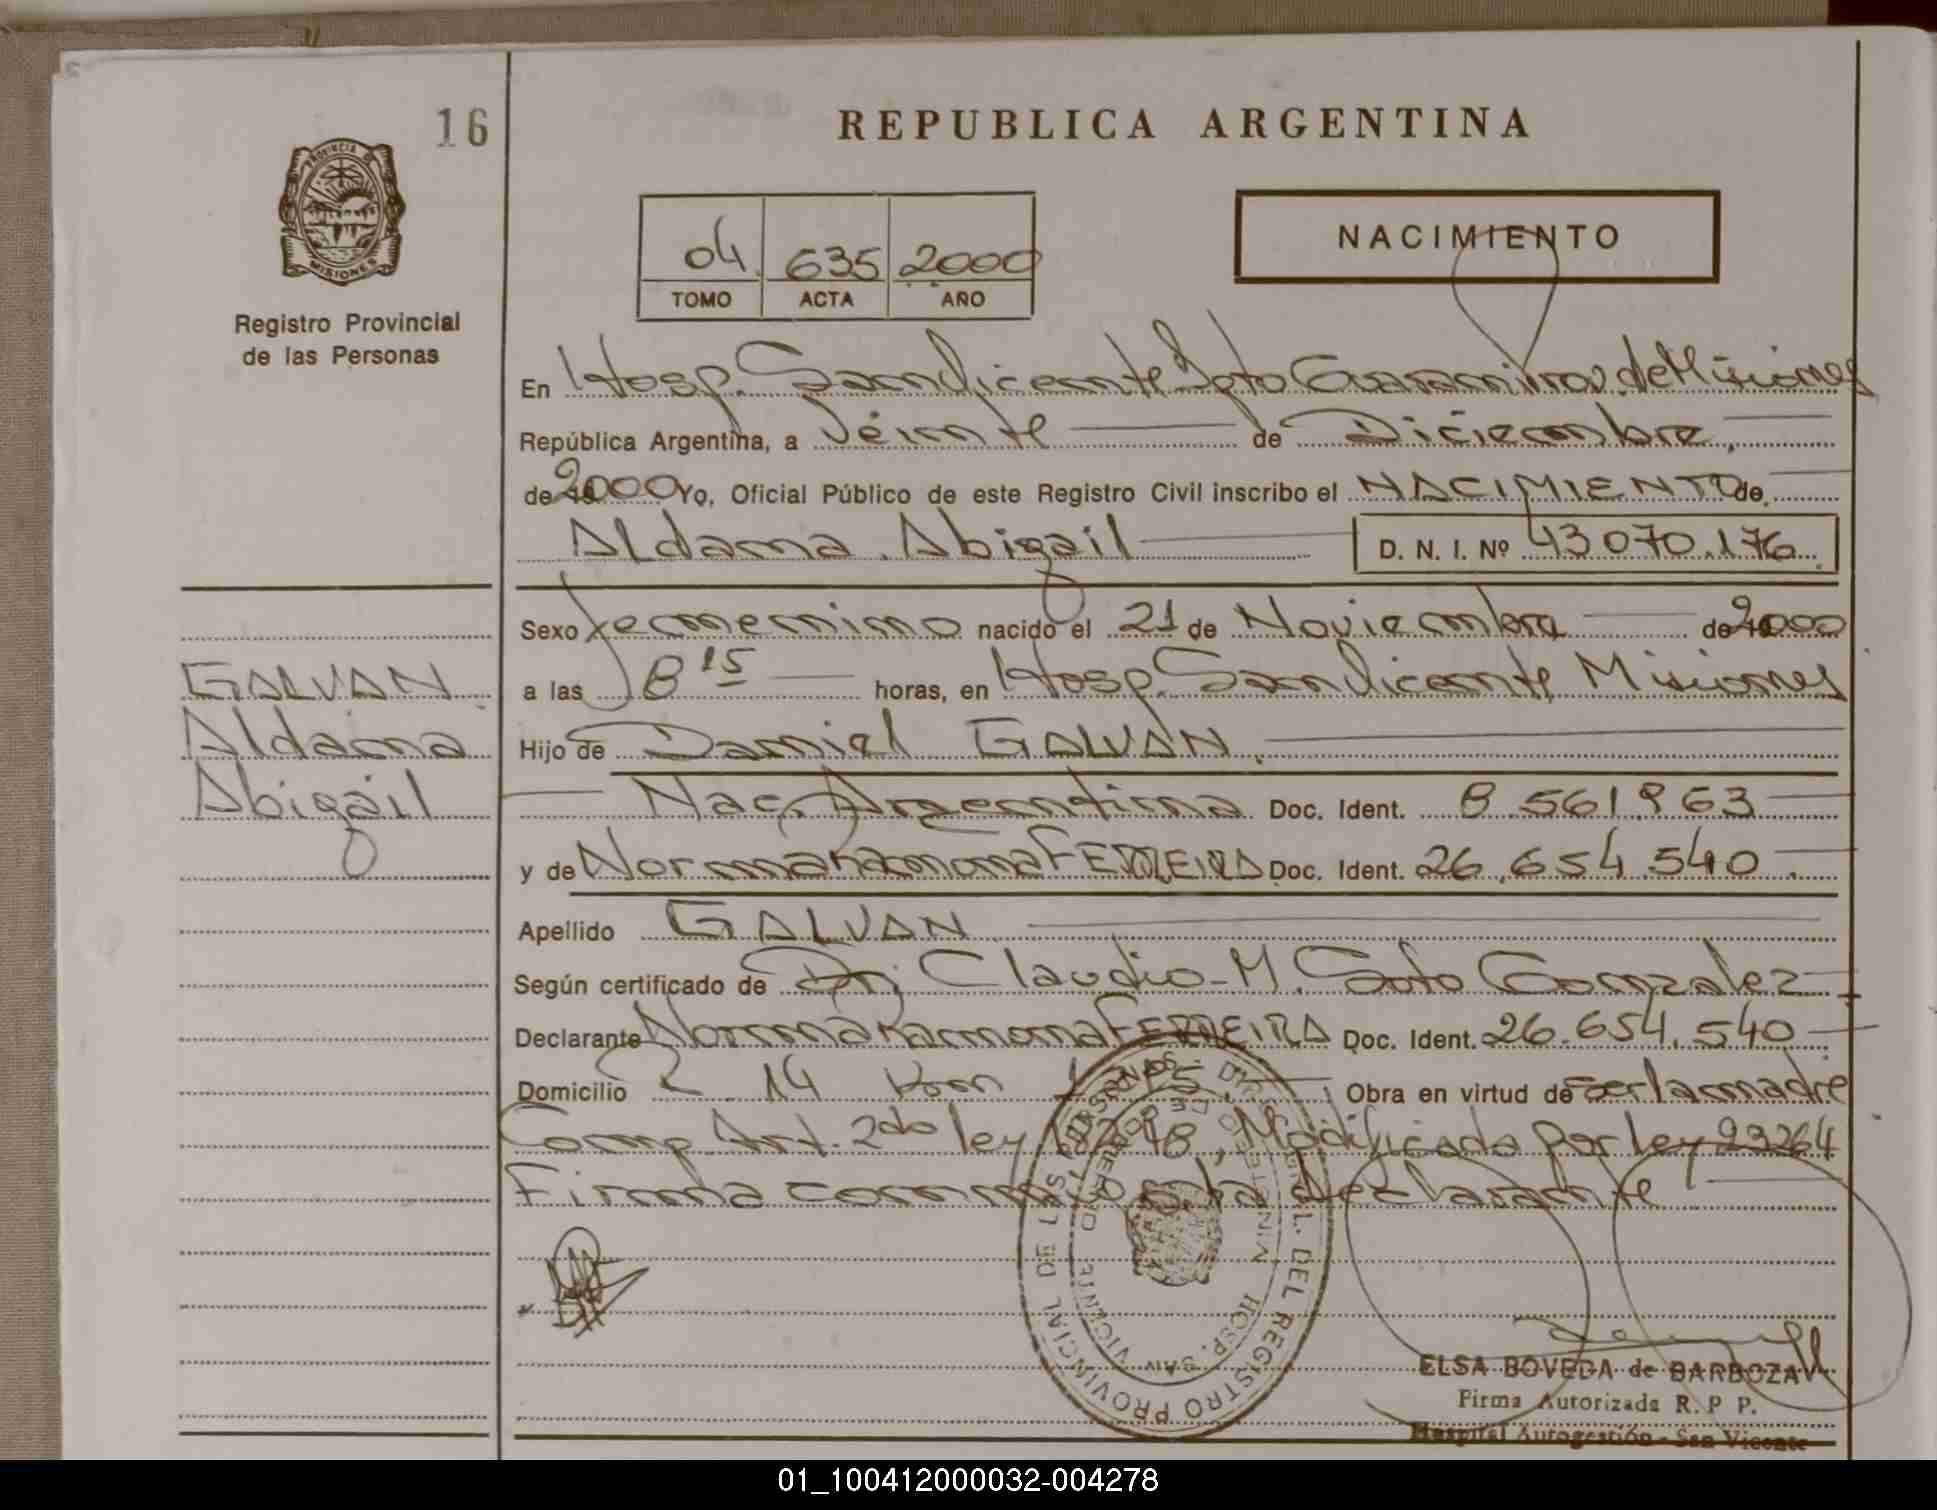 16
REPUBLICA ARGENTINA
PROVINCIA D
MISIONES
Registro Provincial
de las Personas
04 635 2000
TOMO ACTA AÑO
NACIMIENTO
En Hosp. San Vicente Dpto Guaraní Prov. de Misiones
República Argentina, a Veinte de Diciembre
de 2000 Yo, Oficial Público de este Registro Civil inscribo el NACIMIENTO de
Aldama Abigail D. N. I. Nº 43.070.176
Sexo femenino nacido el 21 de Noviembre de 2000
a las 8 15 horas, en Hosp. San Vicente Misiones
Hijo de Daniel GALVAN
Nac. Argentina Doc. Ident. 8.561.963
y de Norma Ramona FERREIRA Doc. Ident. 26.654.540
Apellido GALVAN
Según certificado de Dr. Claudio M. Soto Gonzalez
Declarante Norma Ramona FERREIRA Doc. Ident. 26.654.540
Domicilio R 14 Km Obra en virtud de ser la madre
Comp. Art. 2do ley 18248, Modificado por ley 23264
Firma conmigo la declarante
GALVAN
Aldama
Abigail
REGISTRO PROVINCIAL DE LAS PERSONAS
HOSP. SAN VICENTE
ELSA BOVEDA de BARBOZA
Firma Autorizada R. P P.
Hospital Autogestión - San Vicente
01_100412000032-004278